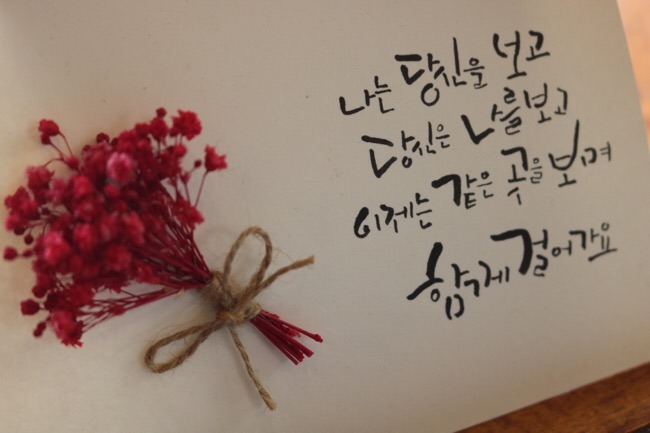 나는 당신을 보고
당신은 나를 보고
이제는 같은 곳을 보며
함께 걸어가요